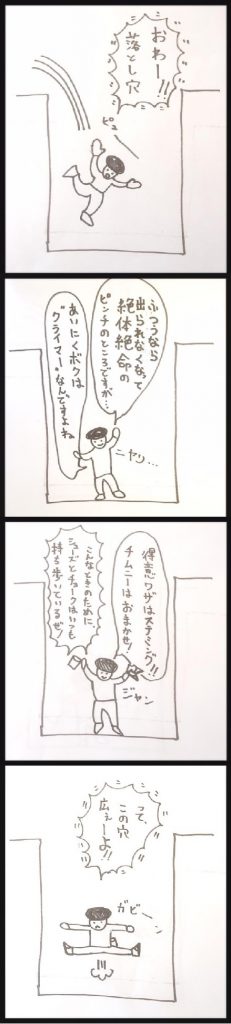 おわー!!
落とし穴
ピュー
ふつうなら
出られなくなって
絶体絶命の
ピンチのところですが…
あいにくボクは
“クライマー”なんですよね
ニヤリ…
得意ワザはステミング!!
チムニーはおまかせ!
こんなときのために、
シューズとチョークはいつも
持ち歩いているぜ!
ジャン
って、
この穴
広ぇーよ!!
ガビーン